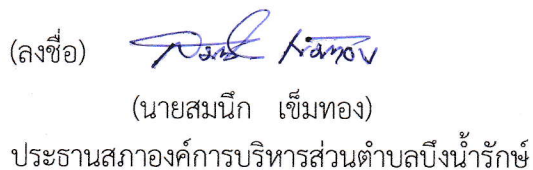 (ลงชื่อ)
(นายสมนึก เข็มทอง)
ประธานสภาองค์การบริหารส่วนตำบลบึงน้ำรักษ์